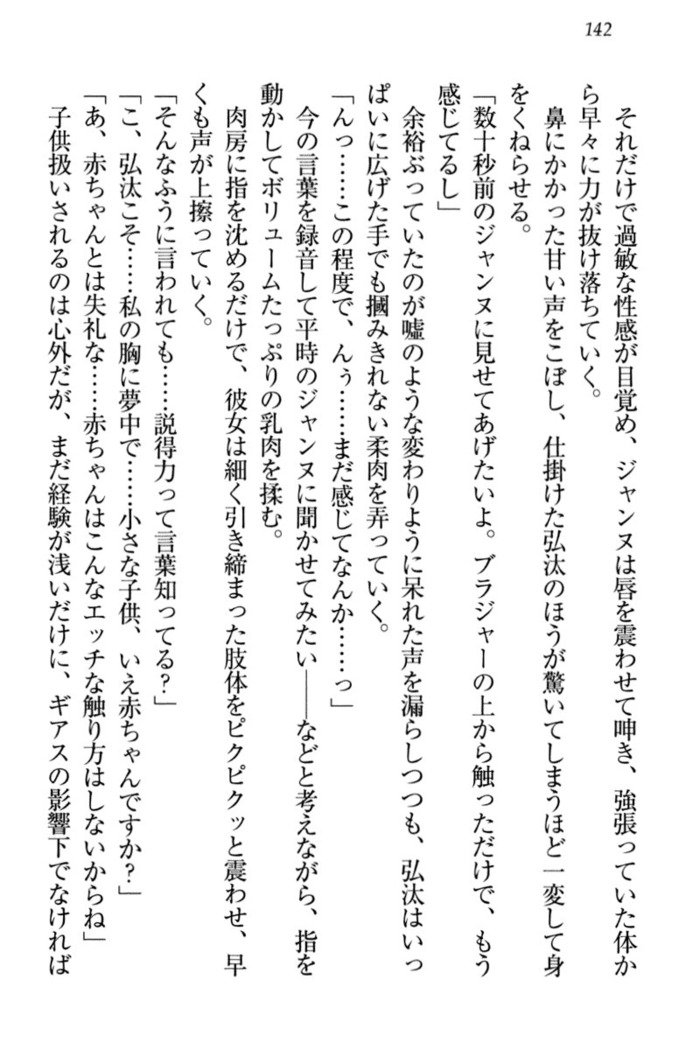 142
それだけで過敏な性感が目覚め、ジャンヌは唇を震わせて呻き、強張っていた体か
ら早々に力が抜け落ちていく。
鼻にかかった甘い声をこぼし、仕掛けた弘汰のほうが驚いてしまうほど一変して身
をくねらせる。
「数十秒前のジャンヌに見せてあげたいよ。ブラジャーの上から触っただけで、もう
感じてるし」
余裕ぶっていたのが嘘のような変わりように呆れた声を漏らしつつも、弘汰はいっ
ぱいに広げた手でも摑みきれない柔肉を弄っていく。
「んっ……この程度で、んぅ……まだ感じてなんか……っ」
今の言葉を録音して平時のジャンヌに聞かせてみたい――などと考えながら、指を
動かしてボリュームたっぷりの乳肉を揉む。
肉房に指を沈めるだけで、彼女は細く引き締まった肢体をピクピクッと震わせ、早
くも声が上擦っていく。
「そんなふうに言われても……説得力って言葉知ってる?」
「こ、弘汰こそ……私の胸に夢中で……小さな子供、いえ赤ちゃんですか?」
「あ、赤ちゃんとは失礼な……赤ちゃんはこんなエッチな触り方はしないからね」
子供扱いされるのは心外だが、まだ経験が浅いだけに、ギアスの影響下でなければ